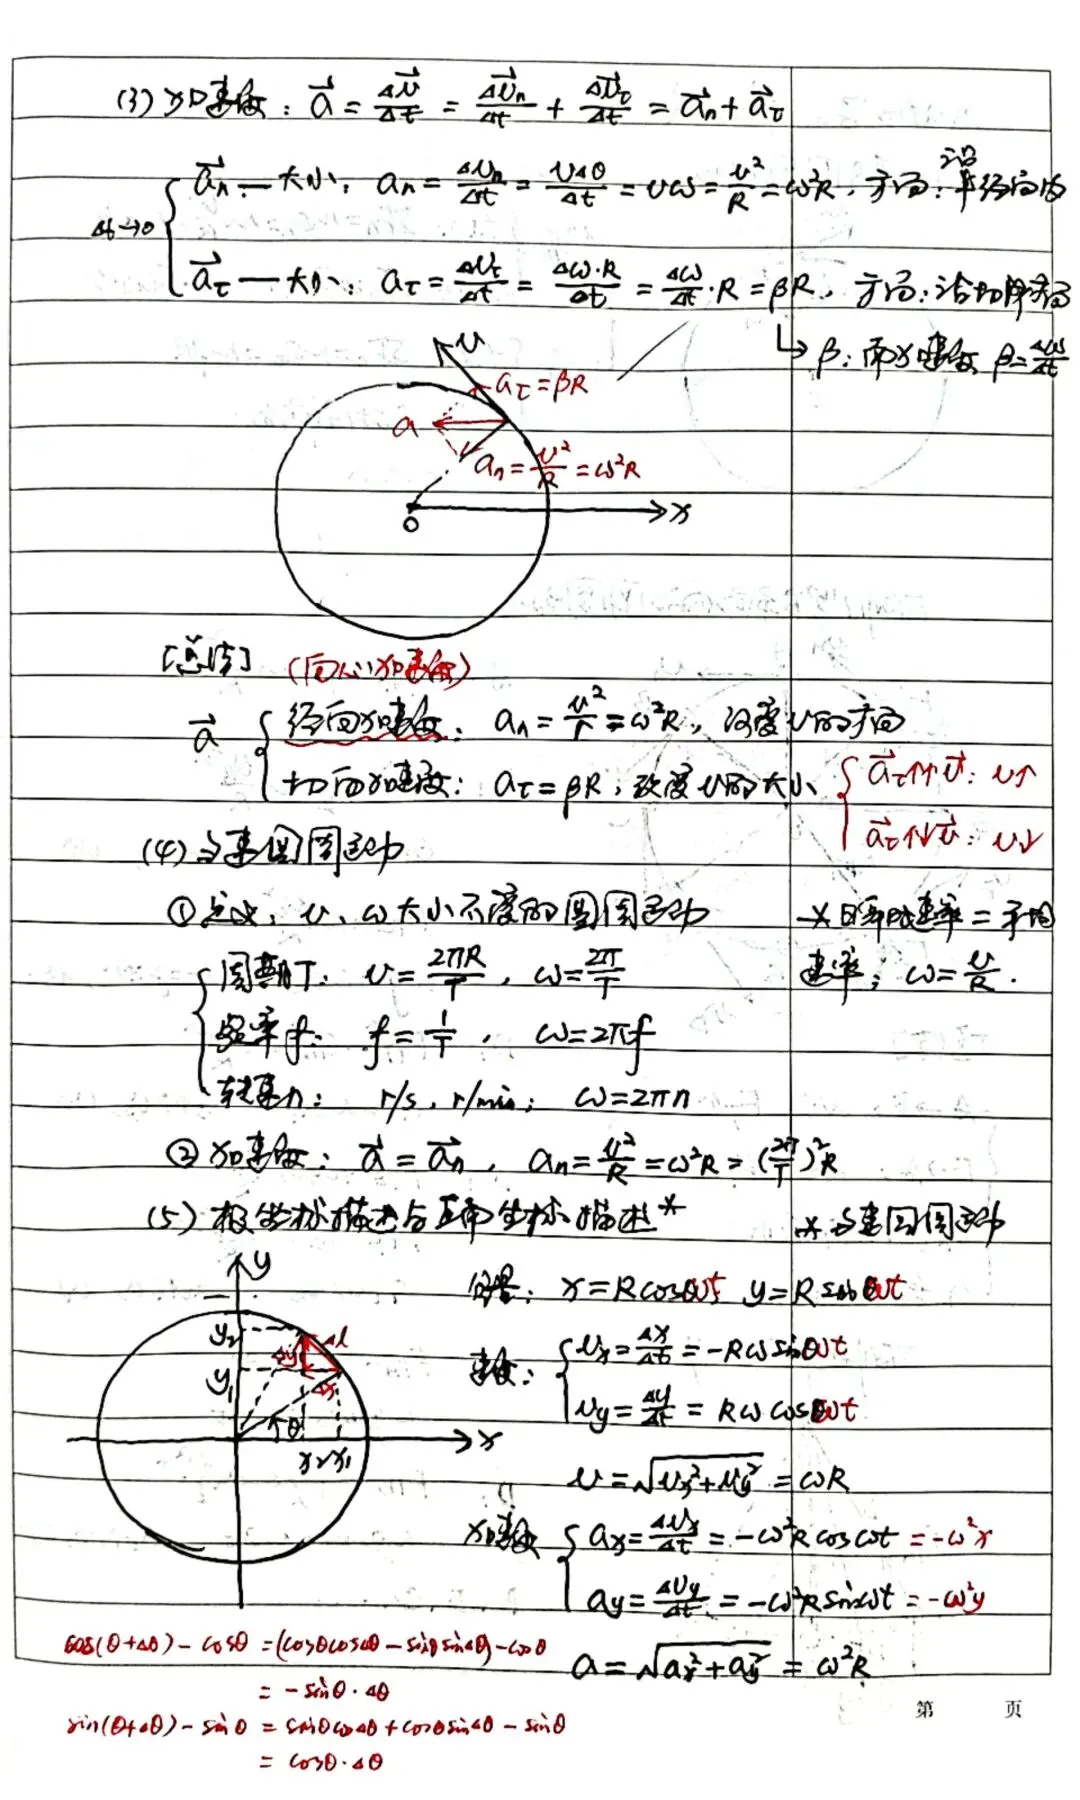 (3) 加速度：a⃗ = Δv⃗/Δt = Δv⃗n/Δt + Δv⃗τ/Δt = a⃗n + a⃗τ
Δt→0
a⃗n — 大小：an = Δvn/Δt = vΔθ/Δt = vω = v²/R = ω²R，方向：沿半径向内
a⃗τ — 大小：aτ = Δvτ/Δt = Δω·R/Δt = Δω/Δt·R = βR，方向：沿切线方向
↳ β：角加速度 β = Δω/Δt
v
aτ = βR
a
an = v²/R = ω²R
O x
[总结] (向心加速度)
a⃗ 径向加速度：an = v²/r = ω²R，改变v的方向
切向加速度：aτ = βR，改变v的大小
a⃗τ↑↑v⃗：v↑
a⃗τ↑↓v⃗：v↓
(4) 匀速圆周运动
① 定义：v、ω大小不变的圆周运动
* 瞬时速率 = 平均
速率；ω = v/R.
周期T：v = 2πR/T，ω = 2π/T
频率f：f = 1/T，ω = 2πf
转速n：r/s，r/min；ω = 2πn
② 加速度：a⃗ = a⃗n，an = v²/R = ω²R = (2π/T)²R
(5) 极坐标描述与直角坐标描述*
* 匀速圆周运动
y
y₂
y₁
Δl
Δy
Δx
θ
x₂ x₁ x
位置：x = Rcosωt y = Rsinωt
速度：vx = Δx/Δt = -Rωsinωt
vy = Δy/Δt = Rωcosωt
v = √(vx²+vy²) = ωR
加速度 ax = Δvx/Δt = -ω²Rcosωt = -ω²x
ay = Δvy/Δt = -ω²Rsinωt = -ω²y
a = √(ax²+ay²) = ω²R
cos(θ+Δθ) - cosθ = (cosθcosΔθ - sinθsinΔθ) - cosθ
= -sinθ·Δθ
sin(θ+Δθ) - sinθ = sinθcosΔθ + cosθsinΔθ - sinθ
= cosθ·Δθ
第 页